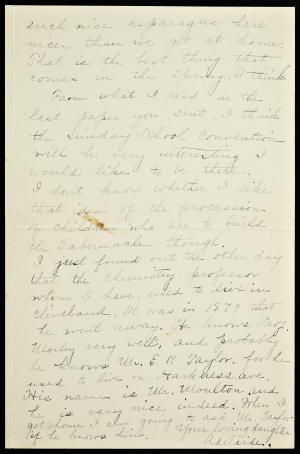 such nice asparagus here,
nicer than we get at home.
That is the best thing that
comes in the spring, I think
From what I read in the
last paper you sent, I think
the Sunday School Convention
will be very interesting. I
would like to be there.
I don't know whether I like
that idea of the procession
of children who are to build
the Tabernacle, though.
I just found out the other day
that the chemistry professor
whom I have, used to live in
Cleveland. It was in 1879 that
he went away. He knows Prof.
Morley very well, and probably
he knows Mr. E. R. Taylor, for he
used to live on Harkness ave.
His name is Mr. Moulton and
he is very nice indeed. When I
get home I am going to ask Mr. Taylor
if he knows him. Your loving daughter
Adelaide.